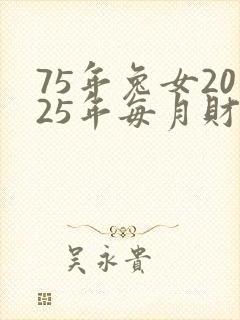 75年兔女20
25年每月財
吴永貴